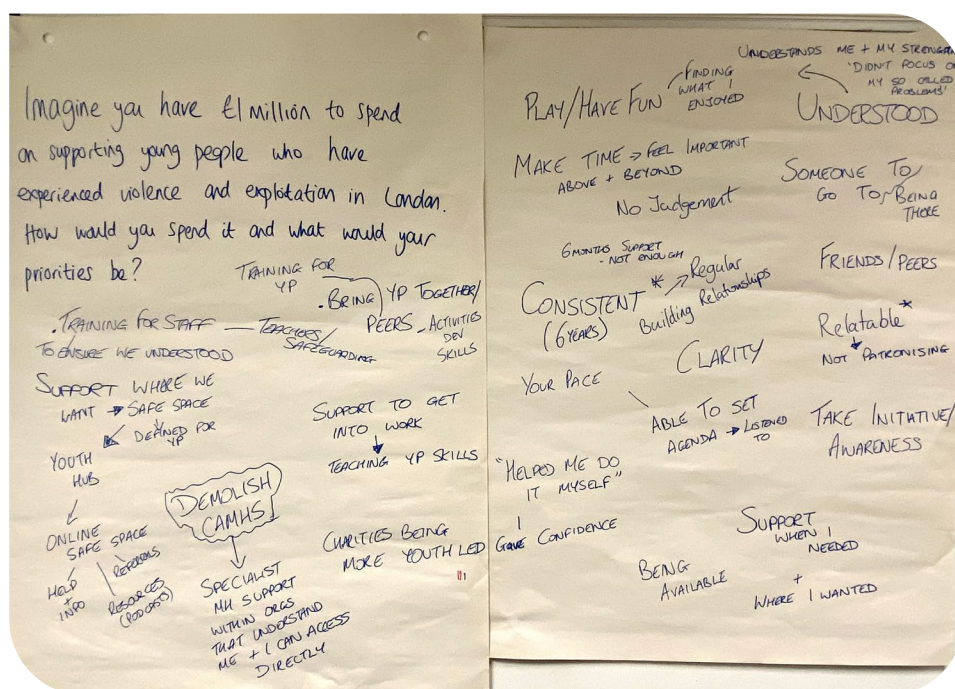 Imagine you have £1 million to spend
on supporting young people who have
experienced violence and exploitation in London.
How would you spend it and what would your
priorities be?
TRAINING FOR
YP
. BRING YP TOGETHER/
PEERS - ACTIVITIES
DEV
SKILLS
. TRAINING FOR STAFF — TEACHERS/
SAFEGUARDING
TO ENSURE WE UNDERSTOOD
SUPPORT WHERE WE
WANT → SAFE SPACE
DEFINED FOR
YP
YOUTH
HUB
ONLINE
SAFE SPACE
HELP
+
INFO
REFERRALS
RESOURCES
(PODCASTS)
DEMOLISH
CAMHS
SPECIALIST
MH SUPPORT
WITHIN ORGS
THAT UNDERSTAND
ME + I CAN ACCESS
DIRECTLY
SUPPORT TO GET
INTO WORK
TEACHING YP SKILLS
CHARITIES BEING
MORE YOUTH LED
PLAY/HAVE FUN
FINDING
WHAT I
ENJOYED
UNDERSTANDS ME + MY
'DIDN'T FOCUS
MY SO CALLED
PROBLEMS'
UNDERSTOOD
MAKE TIME → FEEL IMPORTANT
ABOVE + BEYOND
No Judgement
SOMEONE TO/
GO TO/BEING
THERE
6 MONTHS SUPPORT
- NOT ENOUGH
CONSISTENT * → Regular
(6 YEARS)
Building Relationships
FRIENDS/PEERS
Relatable *
NOT PATRONISING
CLARITY
YOUR PACE
ABLE TO SET
AGENDA → LISTENED
TO
TAKE INITIATIVE/
AWARENESS
"HELPED ME DO
IT MYSELF"
GAVE CONFIDENCE
SUPPORT
WHEN I
NEEDED
+
WHERE I WANTED
BEING
AVAILABLE